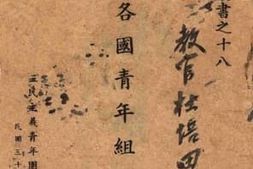 書之十八
教官杜培田
各國青年組
三民主義青年團
民國三十